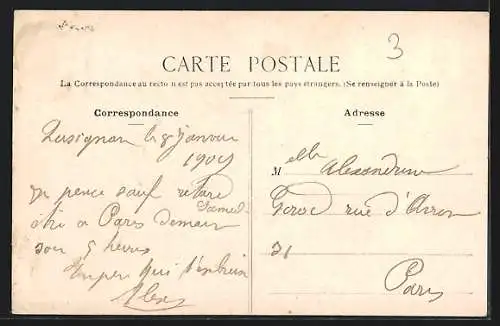 3
CARTE POSTALE
La Correspondance au recto n'est pas acceptée par tous les pays étrangers. (Se renseigner à la Poste)
Correspondance
Adresse
Lusignan le 8 janvier
190
je pence sauf retard
Samedi
être a Paris demain
soir 5 heures
qui t'embrasse
Alex
M elle Alexandrine
rue d'Avron
31
Paris